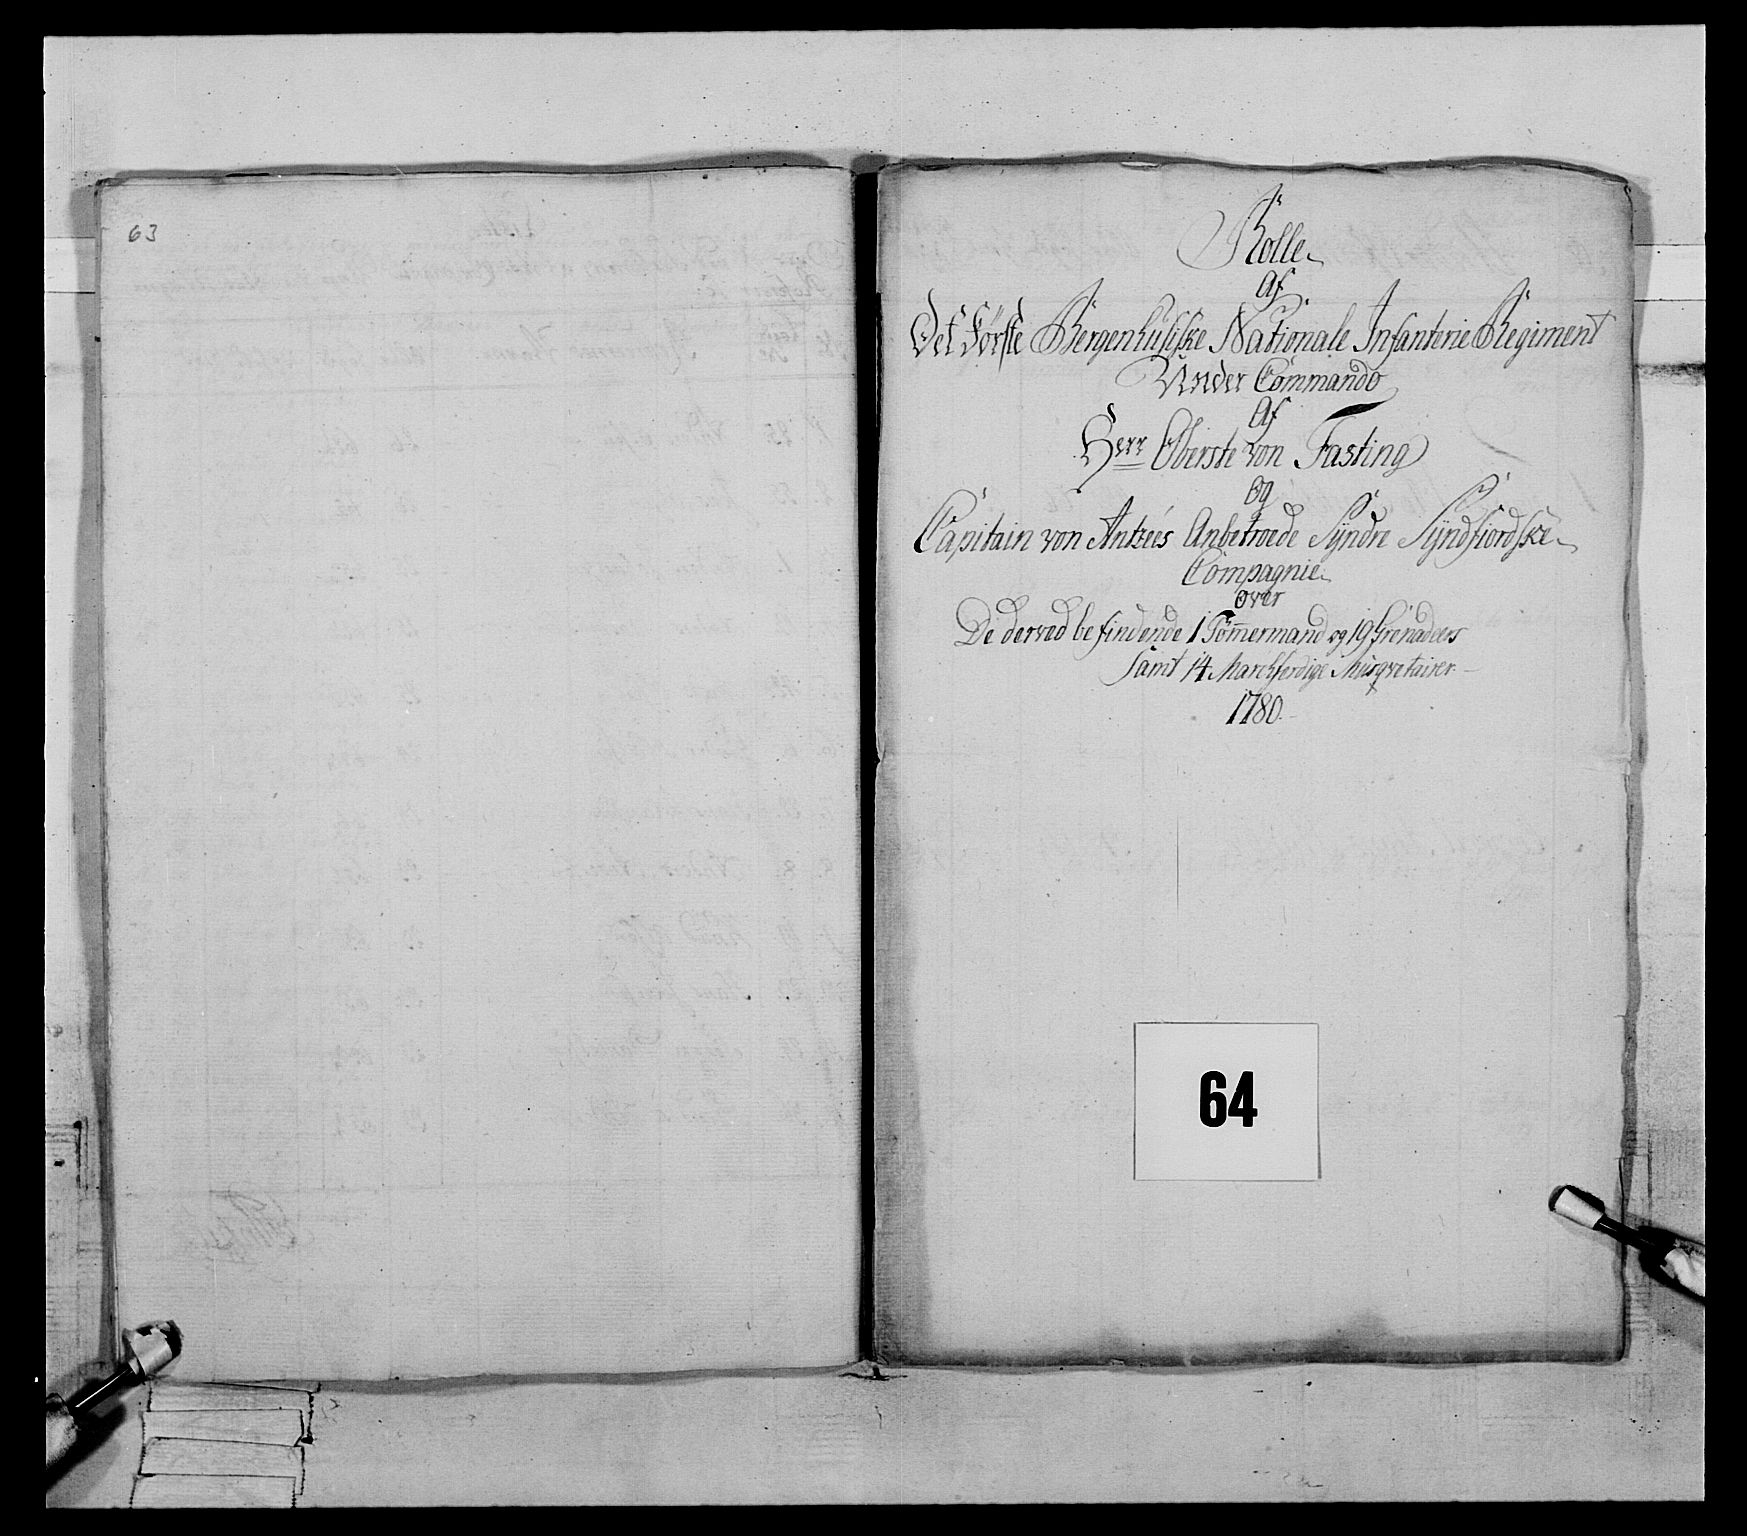 63
Rolle
Af
Det Første Bergenhusiske Nationale Infanterie Regiment
Under Commando
Af
Herr Oberste von Fasting
Og
Capitain von Antzées Anbetroede Syndre Syndfiordske
Compagnie
over
De derved befindende 1 Tømermand og 19 Grenadeers
samt 14 Marchferdige Musqvetairer
1780.
64